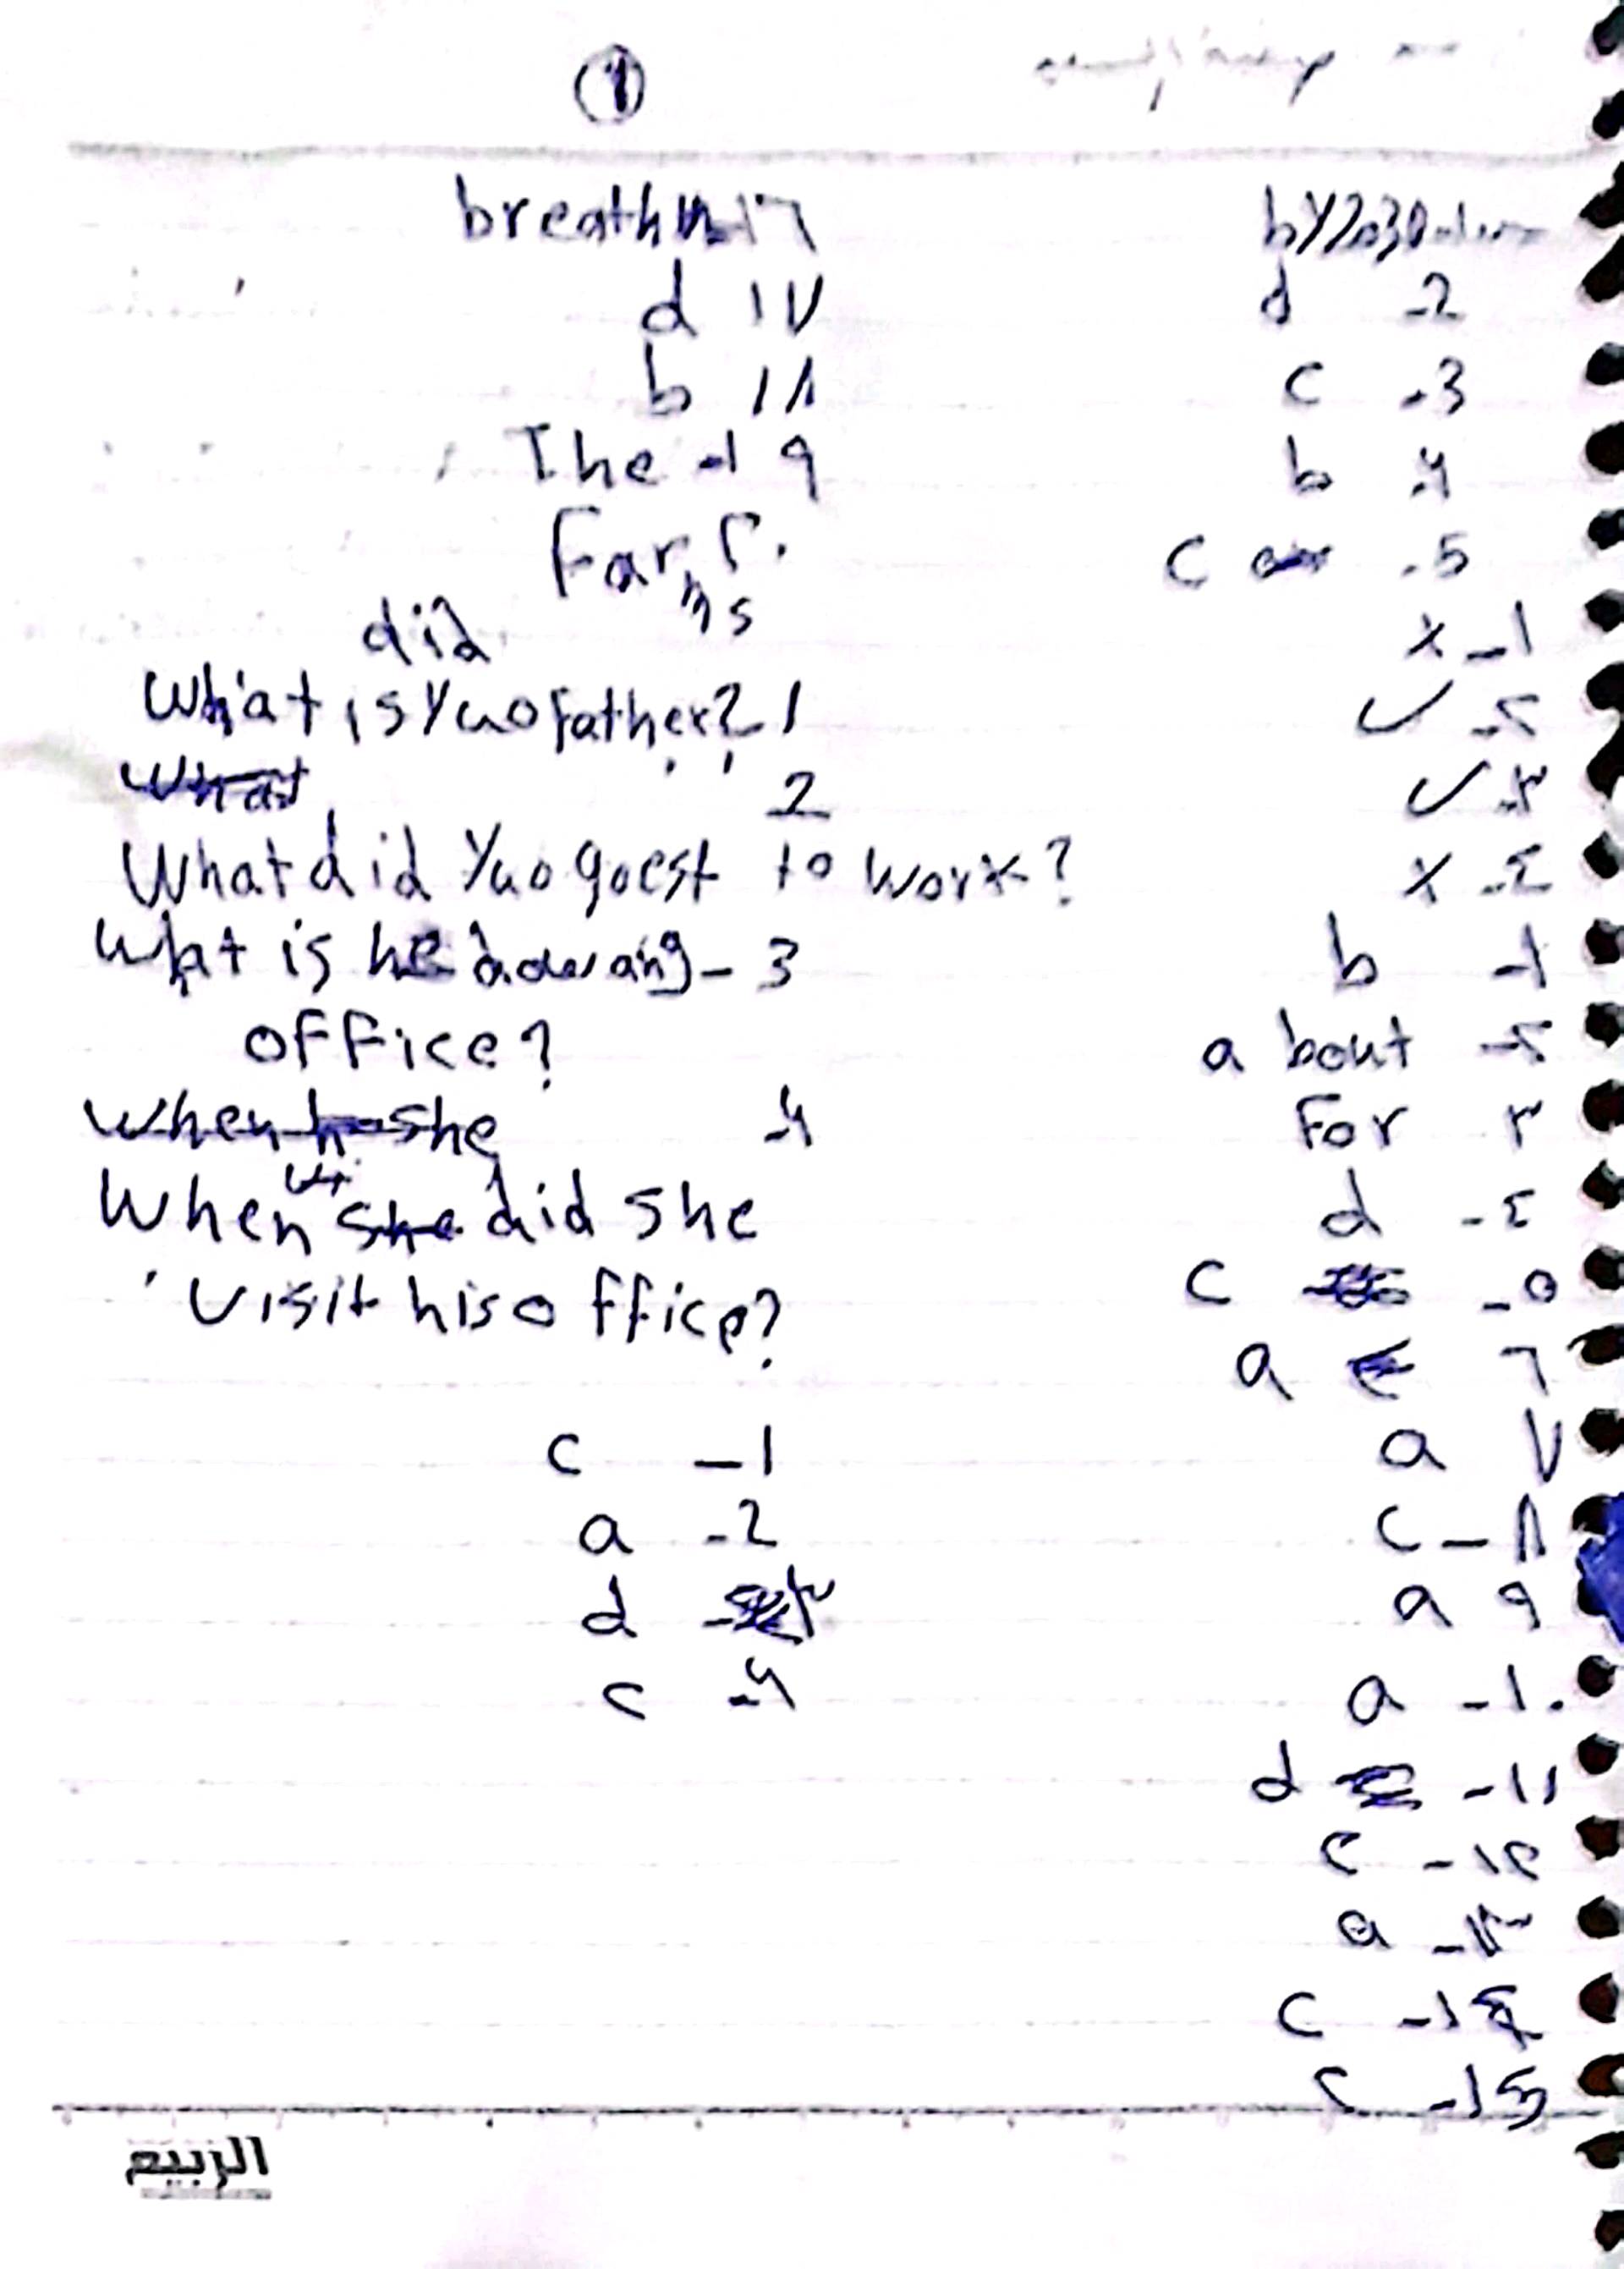 1
by 2030 -1
d -2
c -3
b -4
c -5
x -1
✓ -٢
✓ -٣
x -٤
b -1
about -٢
For ٣
d -٤
c -٥
a ٦
a ٧
c - ٨
a ٩
a -١٠
d -١١
c -١٢
a -١٣
c -١٤
c -15
breath ١٦
d ١٧
b ١٨
The -١٩
Farms ٢٠
did
What is yuo father? 1
What 2
What did yuo goest to work?
What is he - 3
office?
When she -4
When she did she
visit his office?
c -1
a -2
d -٣
c -4
الربيع